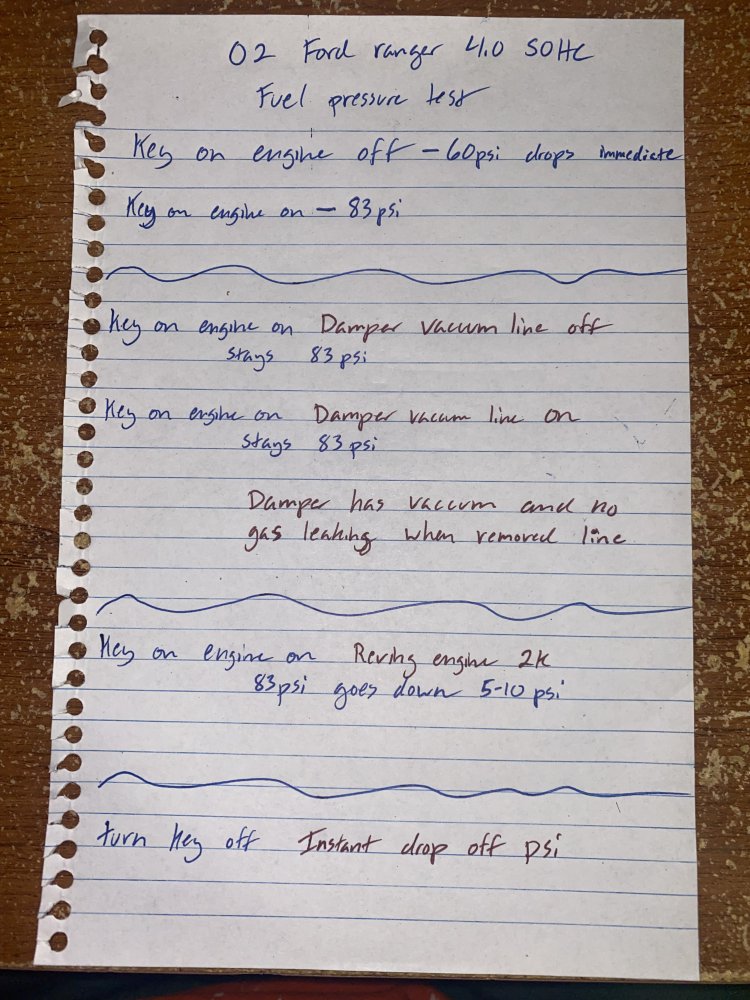 02 Ford ranger 4.0 SOHC
Fuel pressure test
Key on engine off - 60psi drops immediate
Key on engine on - 83 psi
Key on engine on Damper vacuum line off
stays 83 psi
Key on engine on Damper vacuum line on
stays 83 psi
Damper has vaccum and no
gas leaking when removed line
Key on engine on Reving engine 2K
83psi goes down 5-10 psi
turn key off Instant drop off psi